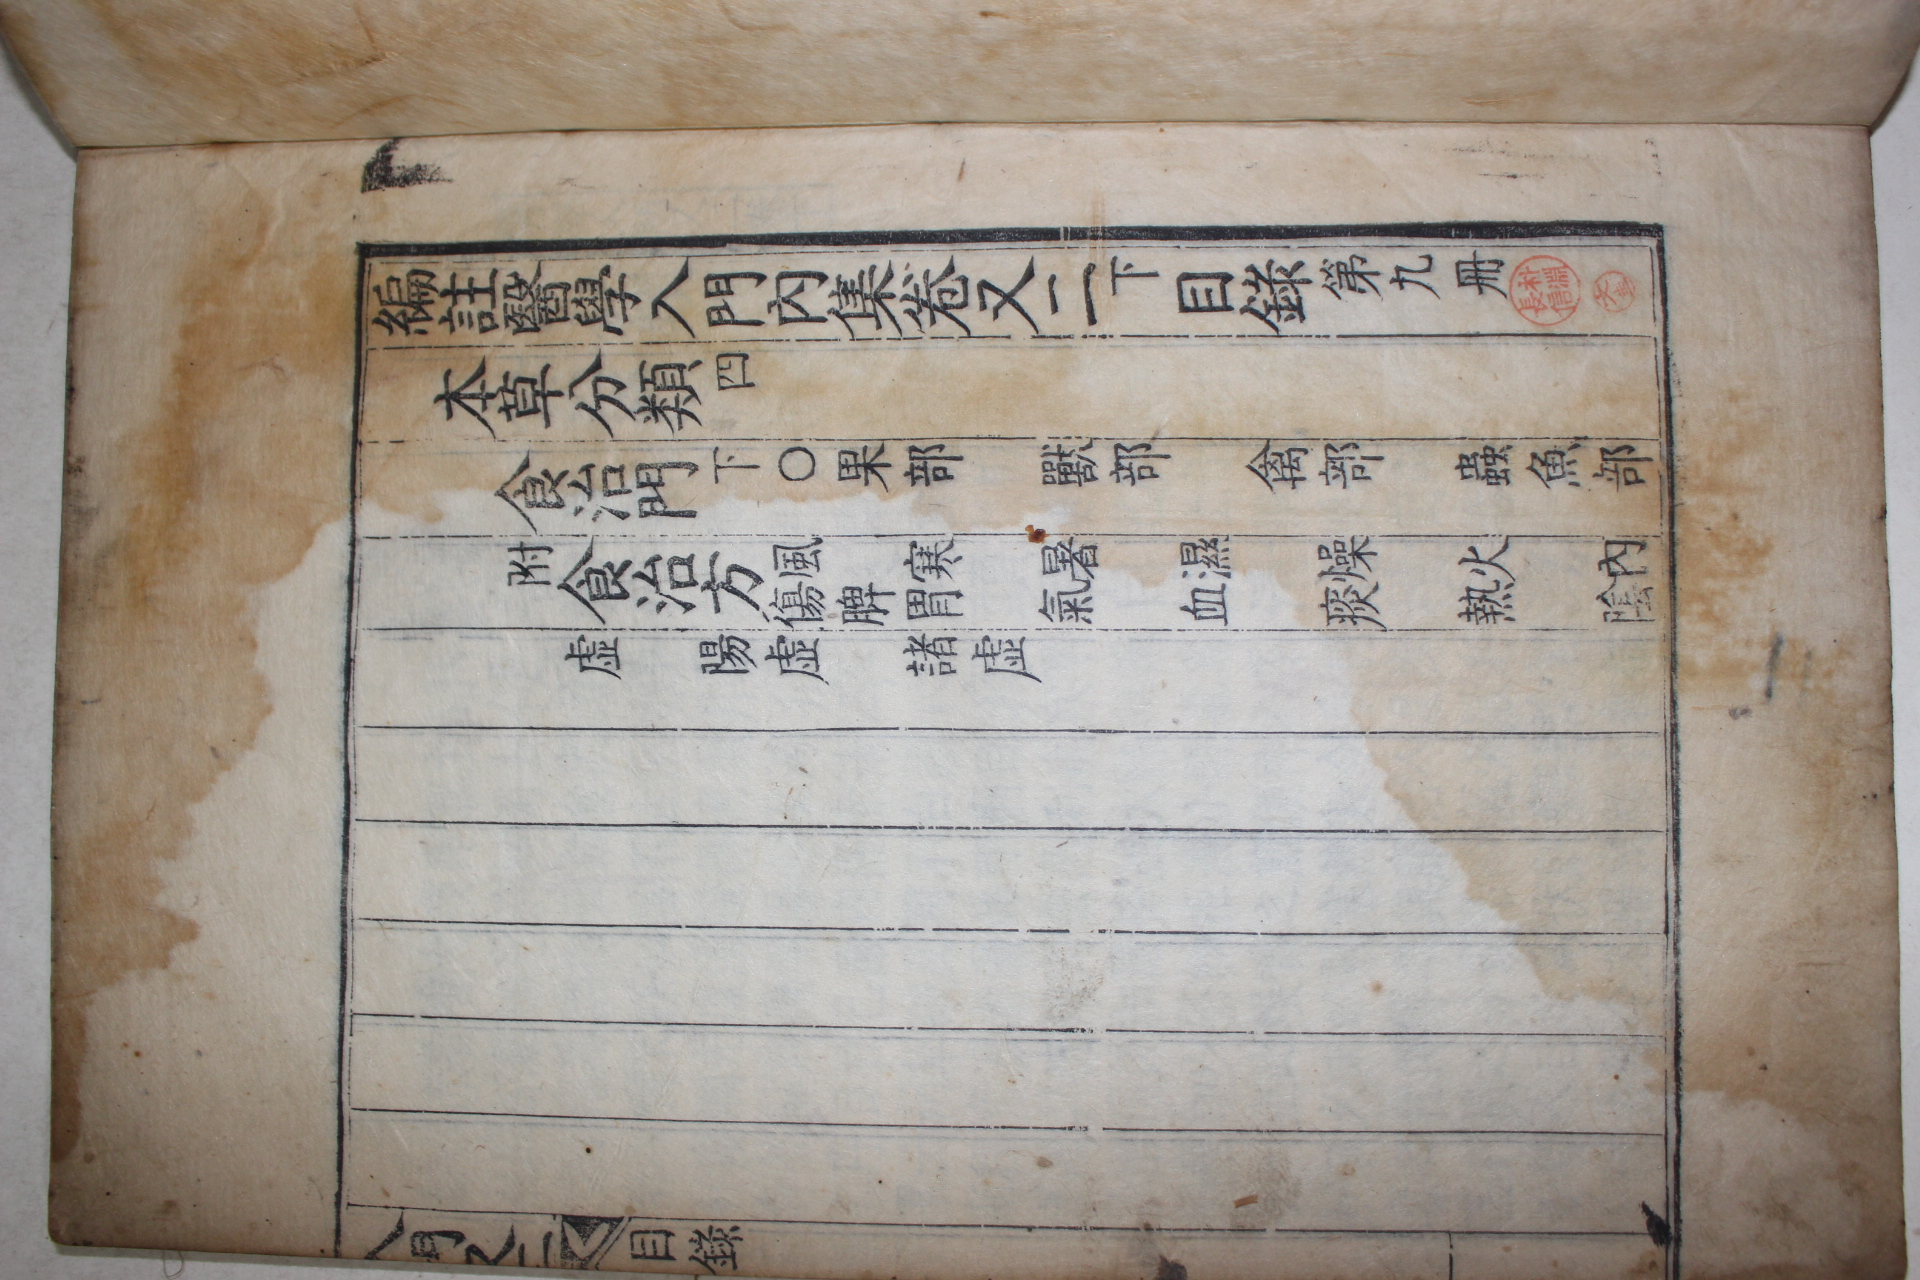 編註醫學入門內集卷又二下目錄 第九冊
本草分類四
食治門下○果部 獸部 禽部 蟲魚部
附食治方 風 寒 暑 濕 燥 火 內
傷 脾胃 氣 血 痰 熱 陰
虛 陽虛 諸虛
入門又二 目錄